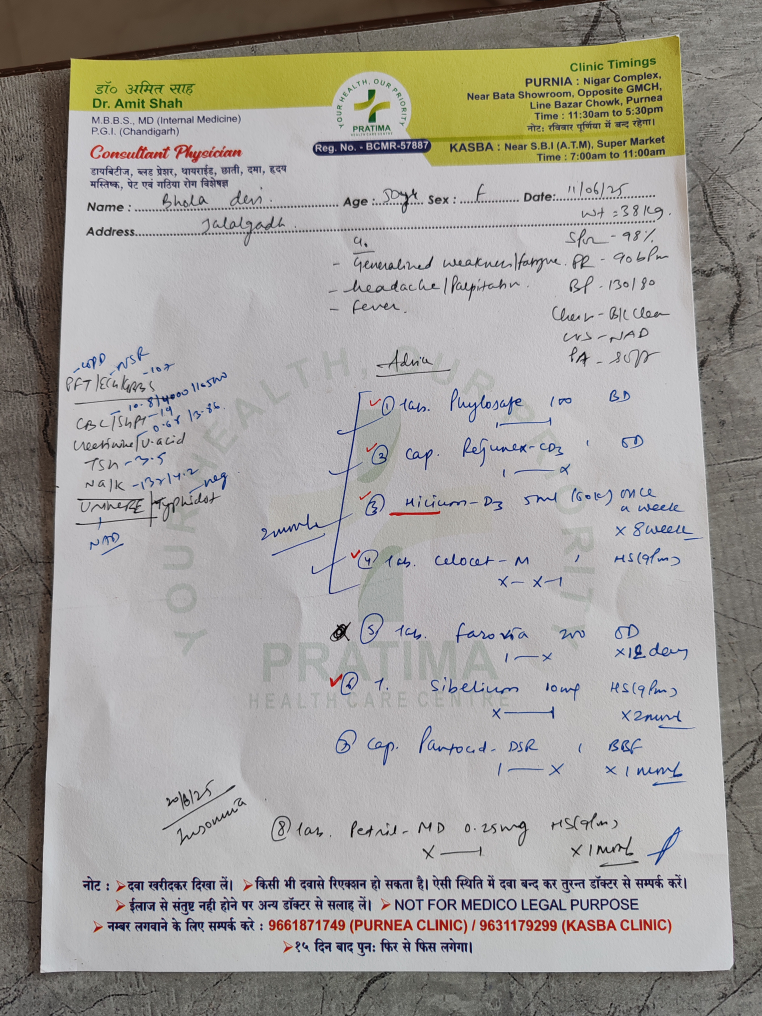 डॉ० अमित साह
Dr. Amit Shah
M.B.B.S., MD (Internal Medicine)
P.G.I. (Chandigarh)
Consultant Physician
डायबिटीज, ब्लड प्रेशर, थायराईड, छाती, दमा, हृदय
मस्तिष्क, पेट एवं गठिया रोग विशेषज्ञ
YOUR HEALTH, OUR PRIORITY
PRATIMA
HEALTH CARE CENTRE
Reg. No. - BCMR-57887
Clinic Timings
PURNIA : Nigar Complex,
Near Bata Showroom, Opposite GMCH,
Line Bazar Chowk, Purnea
Time : 11:30am to 5:30pm
नोट: रविवार पूर्णिया में बन्द रहेगा।
KASBA : Near S.B.I (A.T.M), Super Market
Time : 7:00am to 11:00am
Name : Bhola devi Age : 50yr Sex : F Date: 11/06/25
Address Jalalgadh
Wt = 38 kg.
SPO2 - 98%
- Generalized weakness/fatigue PR - 90 bpm
- headache/Palpitation BP - 130/80
- Fever.
Chest - B/L Clear
CVS - NAD
PA - soft
NSR
-107
PFT/ECG/RBS
10.8/4000/
CBC/SGPT-19
0.68/3.86
Creatinine/U.acid
TSH - 3.5
Na/K - 132/4.2 neg
Urine RE/Typhidot
NAD
Advice
① tab. Phylosafe 100 BD
1——1
② cap. Rejunex-CD3 1 OD
1——X
③ -D3 5ml (60k) once
a week
x 8 week
④ tab. Celocet-M 1 HS(9pm)
X—X—1
2 month
⑤ tab. Farovia 200 OD
1——X days
⑥ T. Sibelium 10mg HS(9pm)
X——1 x 2 month
⑦ cap. Pantocid-DSR 1 BBF
1——X x 1 month
Insomnia
⑧ tab. Petril-MD 0.25mg HS(9pm)
X——1 x 1 month
YOUR HEALTH, OUR PRIORITY
PRATIMA
HEALTH CARE CENTRE
नोट : ➤दवा खरीदकर दिखा लें। ➤किसी भी दवासे रिएक्शन हो सकता है। ऐसी स्थिति में दवा बन्द कर तुरन्त डॉक्टर से सम्पर्क करें।
➤ईलाज से संतुष्ट नही होने पर अन्य डॉक्टर से सलाह लें। ➤NOT FOR MEDICO LEGAL PURPOSE
➤नम्बर लगवाने के लिए सम्पर्क करे : 9661871749 (PURNEA CLINIC) / 9631179299 (KASBA CLINIC)
➤१५ दिन बाद पुन: फिर से फिस लगेगा।